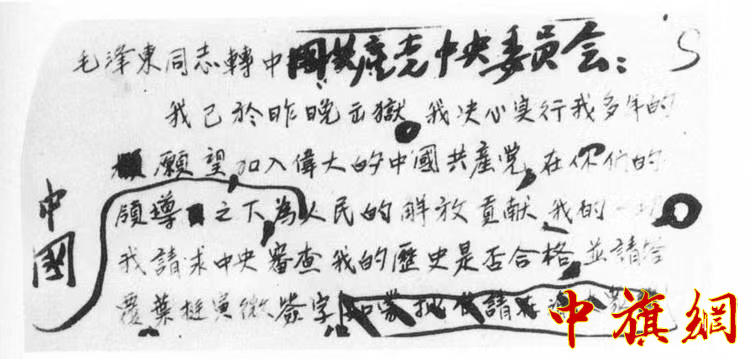 毛泽東同志轉中國共產党中央委员会：
我已於昨晚出獄。我决心实行我多年的
願望，加入偉大的中國共產党，在你們的
領導之下，為人民的解放贡献我的一切。
中國
我請求中央審查我的歷史是否合格，並請答
覆。葉挺寅微签字
中旗網